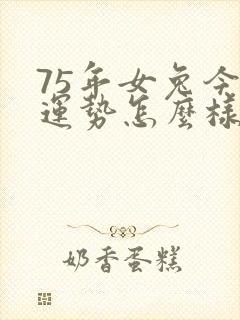 75年女兔今
運勢怎麼樣
奶香蛋糕